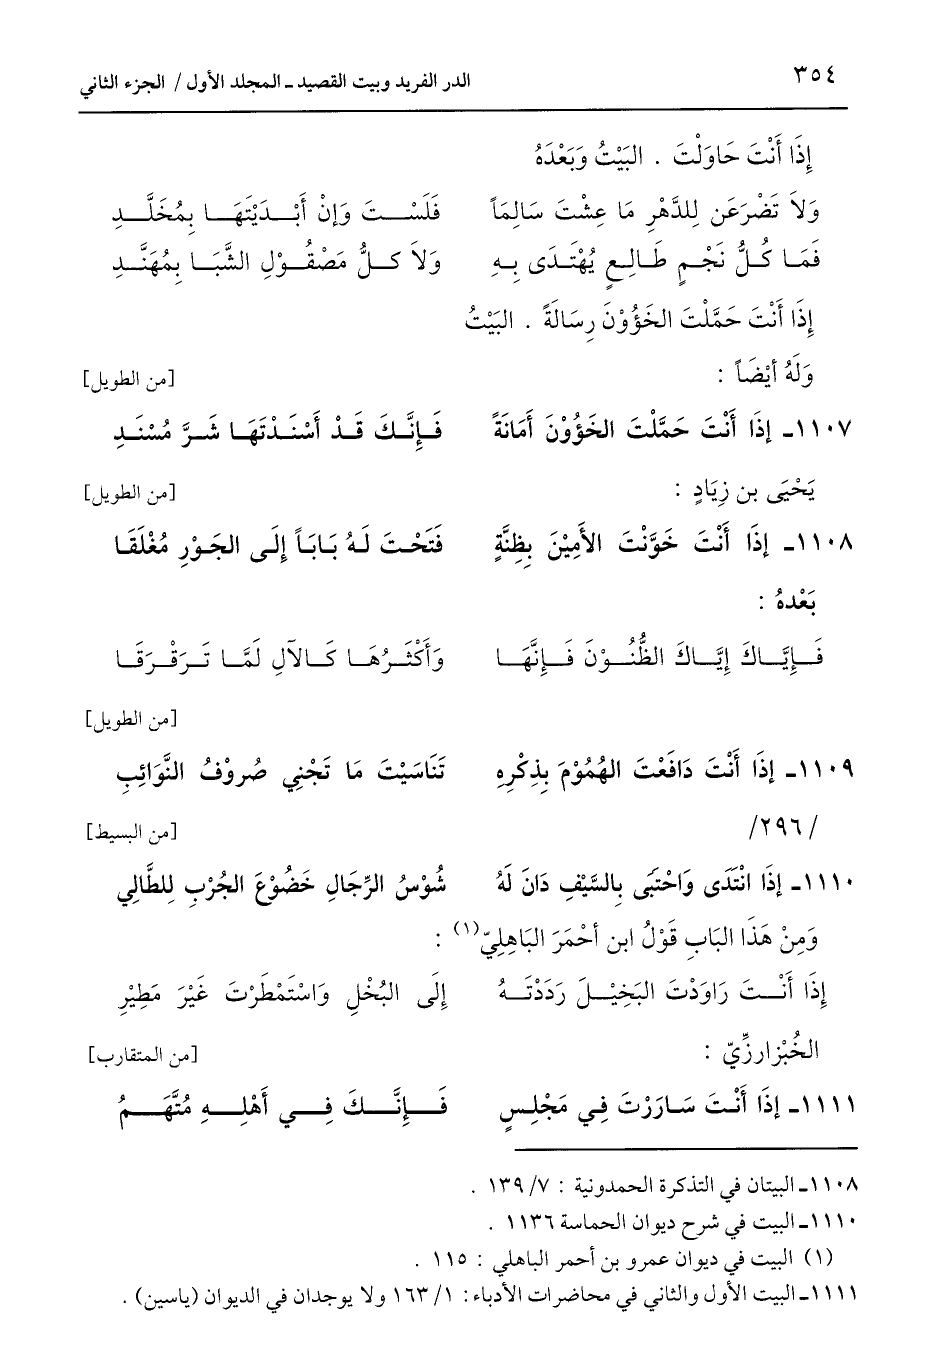 ٣٥٤ الدر الفريد وبيت القصيد ـ المجلد الأول / الجزء الثاني
إِذَا أَنْتَ حَاوَلْتَ . البَيْتُ وَبَعْدَهُ
وَلاَ تَضْرَعَن لِلدَّهْرِ مَا عِشْتَ سَالِمَاً فَلَسْتَ وَإِنْ أَبْدَيْتَهَا بِمُخَلَّدِ
فَمَا كُلُّ نَجْمٍ طَالِعٍ يُهْتَدَى بِهِ وَلاَ كلُّ مَصْقُولِ الشَّبَا بِمُهَنَّدِ
إِذَا أَنْتَ حَمَّلْتَ الخَؤُوْنَ رِسَالَةً . البَيْتُ
وَلَهُ أيْضَاً : [من الطويل]
١١٠٧ـ إِذَا أَنْتَ حَمَّلْتَ الخَؤُوْنَ أَمَانَةً فَإِنَّكَ قَدْ أَسْنَدْتَهَا شَرَّ مُسْنَدِ
يَحْيَى بن زِيَادٍ : [من الطويل]
١١٠٨ـ إِذَا أَنْتَ خَوَّنْتَ الأَمِيْنَ بِظِنَّةٍ فَتَحْتَ لَهُ بَابَاً إِلَى الجَوْرِ مُغْلَقَا
بَعْدهُ :
فَإِيَّاكَ إِيَّاكَ الظُّنُوْنَ فَإِنَّهَا وَأَكْثَرُهَا كَالآلِ لَمَّا تَرَقْرَقَا
[من الطويل]
١١٠٩ـ إِذَا أَنْتَ دَافَعْتَ الهُمُوْمَ بِذِكْرِهِ تَنَاسَيْتَ مَا تَجْنِي صُروْفُ النَّوَائِبِ
/٢٩٦/ [من البسيط]
١١١٠ـ إِذَا انْتَدَى وَاحْتَبَى بِالسَّيْفِ دَانَ لَهُ شُوْسُ الرِّجَالِ خَضُوْعَ الجُرْبِ لِلطَّالِي
وَمِنْ هَذَا البَابِ قَوْلُ ابن أحْمَرَ البَاهِلِيّ(١) :
إِذَا أَنْتَ رَاوَدْتَ البَخِيْلَ رَدَدْتَهُ إِلَى البُخْلِ وَاسْتَمْطَرْتَ غَيْرَ مَطِيْرِ
الخُبْزارزِّيّ : [من المتقارب]
١١١١ـ إِذَا أَنْتَ سَارَرْتَ فِي مَجْلِسٍ فَإِنَّكَ فِي أَهْلِهِ مُتَّهَمُ
١١٠٨ـ البيتان في التذكرة الحمدونية : ٧/ ١٣٩ .
١١١٠ـ البيت في شرح ديوان الحماسة ١١٣٦ .
(١) البيت في ديوان عمرو بن أحمر الباهلي : ١١٥ .
١١١١ـ البيت الأول والثاني في محاضرات الأدباء: ١/ ١٦٣ ولا يوجدان في الديوان (ياسين) .